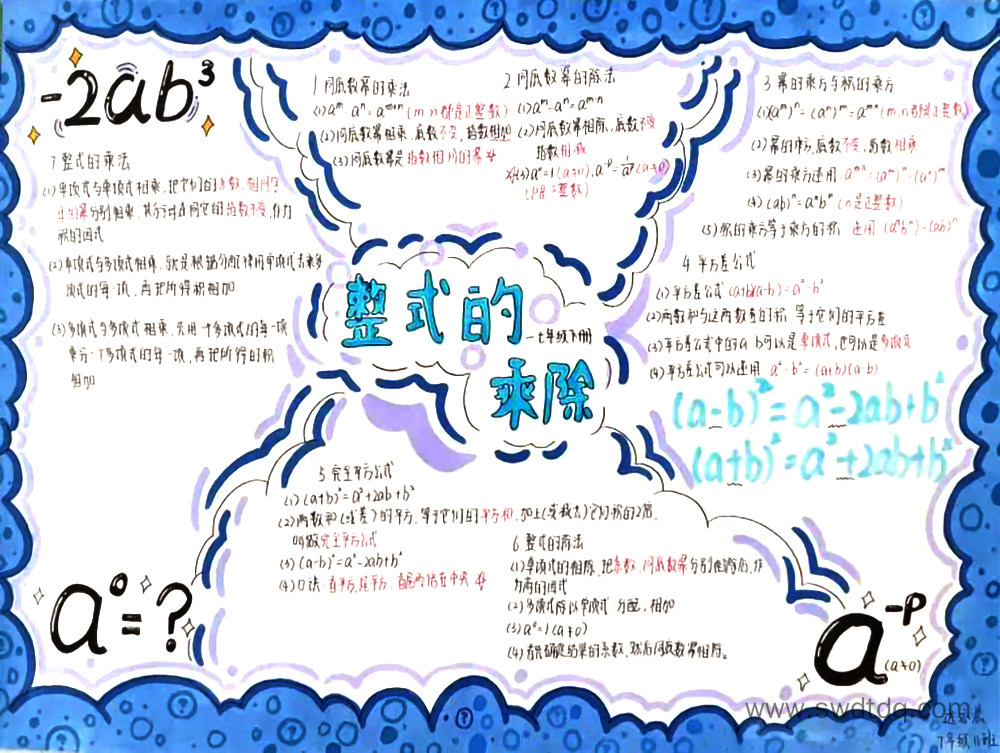 -2ab³
1 同底数幂的乘法
(1) aᵐ·aⁿ=aᵐ⁺ⁿ (m·n都是正整数)
(2) 同底数幂相乘,底数不变,指数相加
(3) 同底数幂是指数相同的幂
2. 同底数幂的除法
(1) aᵐ÷aⁿ=aᵐ⁻ⁿ
(2) 同底数幂相除,底数不变
指数相减
(3) a⁰=1 (a≠0), a⁻ᵖ=1/aᵖ (a≠0)
(P是正整数)
3 幂的乘方与积的乘方
(1) (aᵐ)ⁿ=(aⁿ)ᵐ=aᵐⁿ (m,n都是正整数)
(2) 幂的乘方,底数不变,指数相乘
(3) 幂的乘方逆用 aᵐⁿ=(aᵐ)ⁿ=(aⁿ)ᵐ
(4) (ab)ⁿ=aⁿbⁿ (n是正整数)
(5) 积的乘方等于乘方的积 逆用 (aⁿbⁿ)=(ab)ⁿ
4 平方差公式
(1) 平方差公式 (a+b)(a-b)=a²-b²
(2) 两数和与这两数差的积,等于它们的平方差
(3) 平方差公式中的a b可以是单项式,也可以是多项式
(4) 平方差公式可以逆用 a²-b²=(a+b)(a-b)
(a-b)²=a²-2ab+b²
(a+b)²=a²+2ab+b²
7 整式的乘法
(1) 单项式与单项式相乘,把它们的系数,相同字
母的幂分别相乘,其余字母连同它的指数不变,作为
积的因式
(2) 单项式与多项式相乘,就是根据分配律用单项式去乘多
项式的每一项,再把所得积相加
(3) 多项式与多项式相乘,先用一个多项式的每一项
乘另一个多项式的每一项,再把所得的积
相加
整式的
一七年级下册
乘除
5 完全平方公式
(1) (a+b)²=a²+2ab+b²
(2) 两数和(或差)的平方,等于它们的平方和,加上(或减去)它们积的2倍,
叫做完全平方公式
(3) (a-b)²=a²-2ab+b²
(4) 口诀:首平方,尾平方,首尾两倍在中央
6 整式的除法
(1) 单项式的相除,把系数,同底数幂分别相除后,作
为商的因式
(2) 多项式除以单项式 分配,相加
(3) a⁰=1 (a≠0)
(4) 首先确定结果的系数,然后同底数幂相除。
a⁰=?
a⁻ᵖ
(a≠0)
www.swdtdq.com
7年级11班